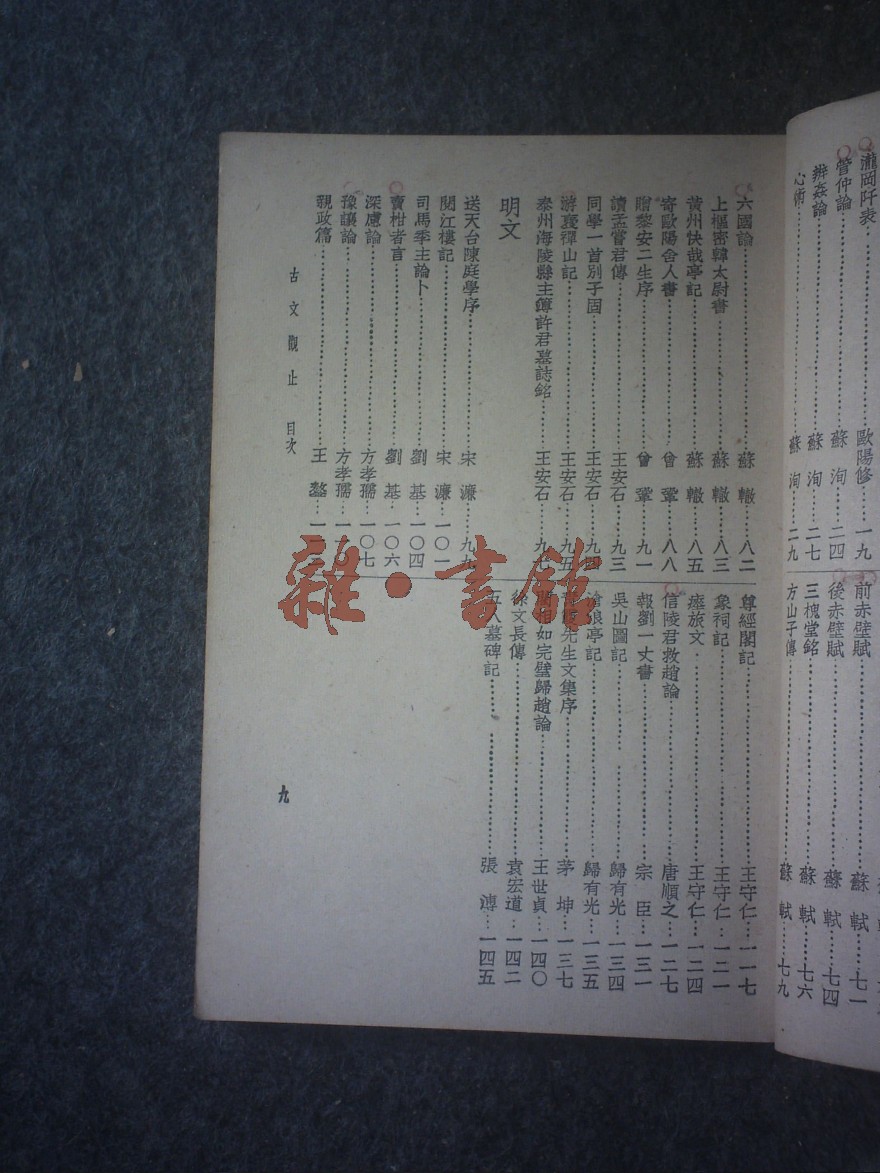 瀧岡阡表 歐陽修 一九
管仲論 蘇洵 二四
辨姦論 蘇洵 二七
心術 蘇洵 二九
前赤壁賦 蘇軾 七一
後赤壁賦 蘇軾 七四
三槐堂銘 蘇軾 七六
方山子傳 蘇軾 七九
六國論 蘇轍 八二
上樞密韓太尉書 蘇轍 八三
黃州快哉亭記 蘇轍 八五
寄歐陽舍人書 曾鞏 八八
贈黎安二生序 曾鞏 九一
讀孟嘗君傳 王安石 九三
同學一首別子固 王安石 九四
游褒禪山記 王安石 九五
泰州海陵縣主簿許君墓誌銘 王安石 九七
明文
送天台陳庭學序 宋濂 九九
閱江樓記 宋濂 一〇一
司馬季主論卜 劉基 一〇四
賣柑者言 劉基 一〇六
深慮論 方孝孺 一〇七
豫讓論 方孝孺 一一〇
親政篇 王鏊 一一
尊經閣記 王守仁 一一七
象祠記 王守仁 一二一
瘞旅文 王守仁 一二四
信陵君救趙論 唐順之 一二七
報劉一丈書 宗臣 一三一
吳山圖記 歸有光 一三四
滄浪亭記 歸有光 一三五
先生文集序 茅坤 一三七
相如完璧歸趙論 王世貞 一四〇
徐文長傳 袁宏道 一四二
五人墓碑記 張溥 一四五
古文觀止 目次
九
雜·書館